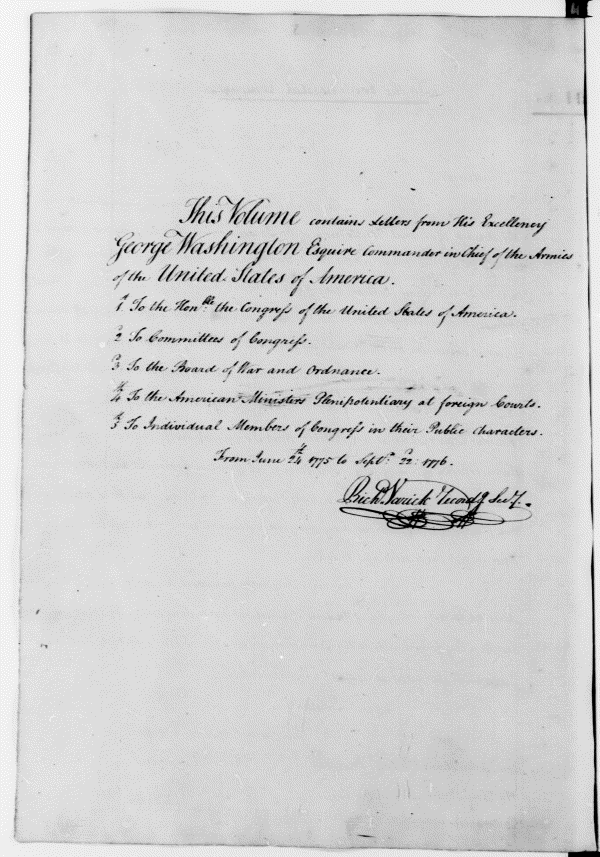 This Volume contains Letters from His Excellency
George Washington Esquire Commander in Chief of the Armies
of the United States of America.
1st To the Honble the Congress of the United States of America.
2d To Committees of Congress.
3d To the Board of War and Ordnance.
4th To the American Ministers Plenipotentiary at foreign Courts.
5th To Individual Members of Congress in their Public Characters.
From June 24th 1775 to Septr 22d 1776.
Richd Varick Recordg Secy.